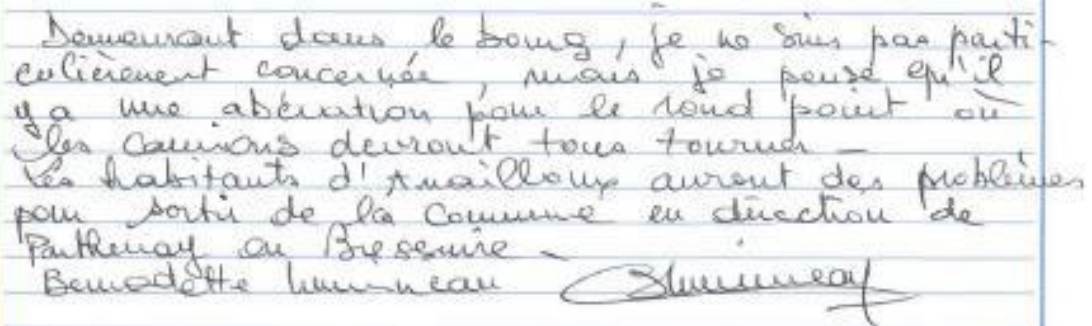 Demeurant dans le bourg, je ne suis pas parti-
culièrement concernée, mais je pense qu'il
y a une abération pour le rond point où
les camions devront tous tourner -
Les habitants d'Amailloux auront des problèmes
pour sortir de la Commune en direction de
Parthenay ou Bressuire -
Bernadette